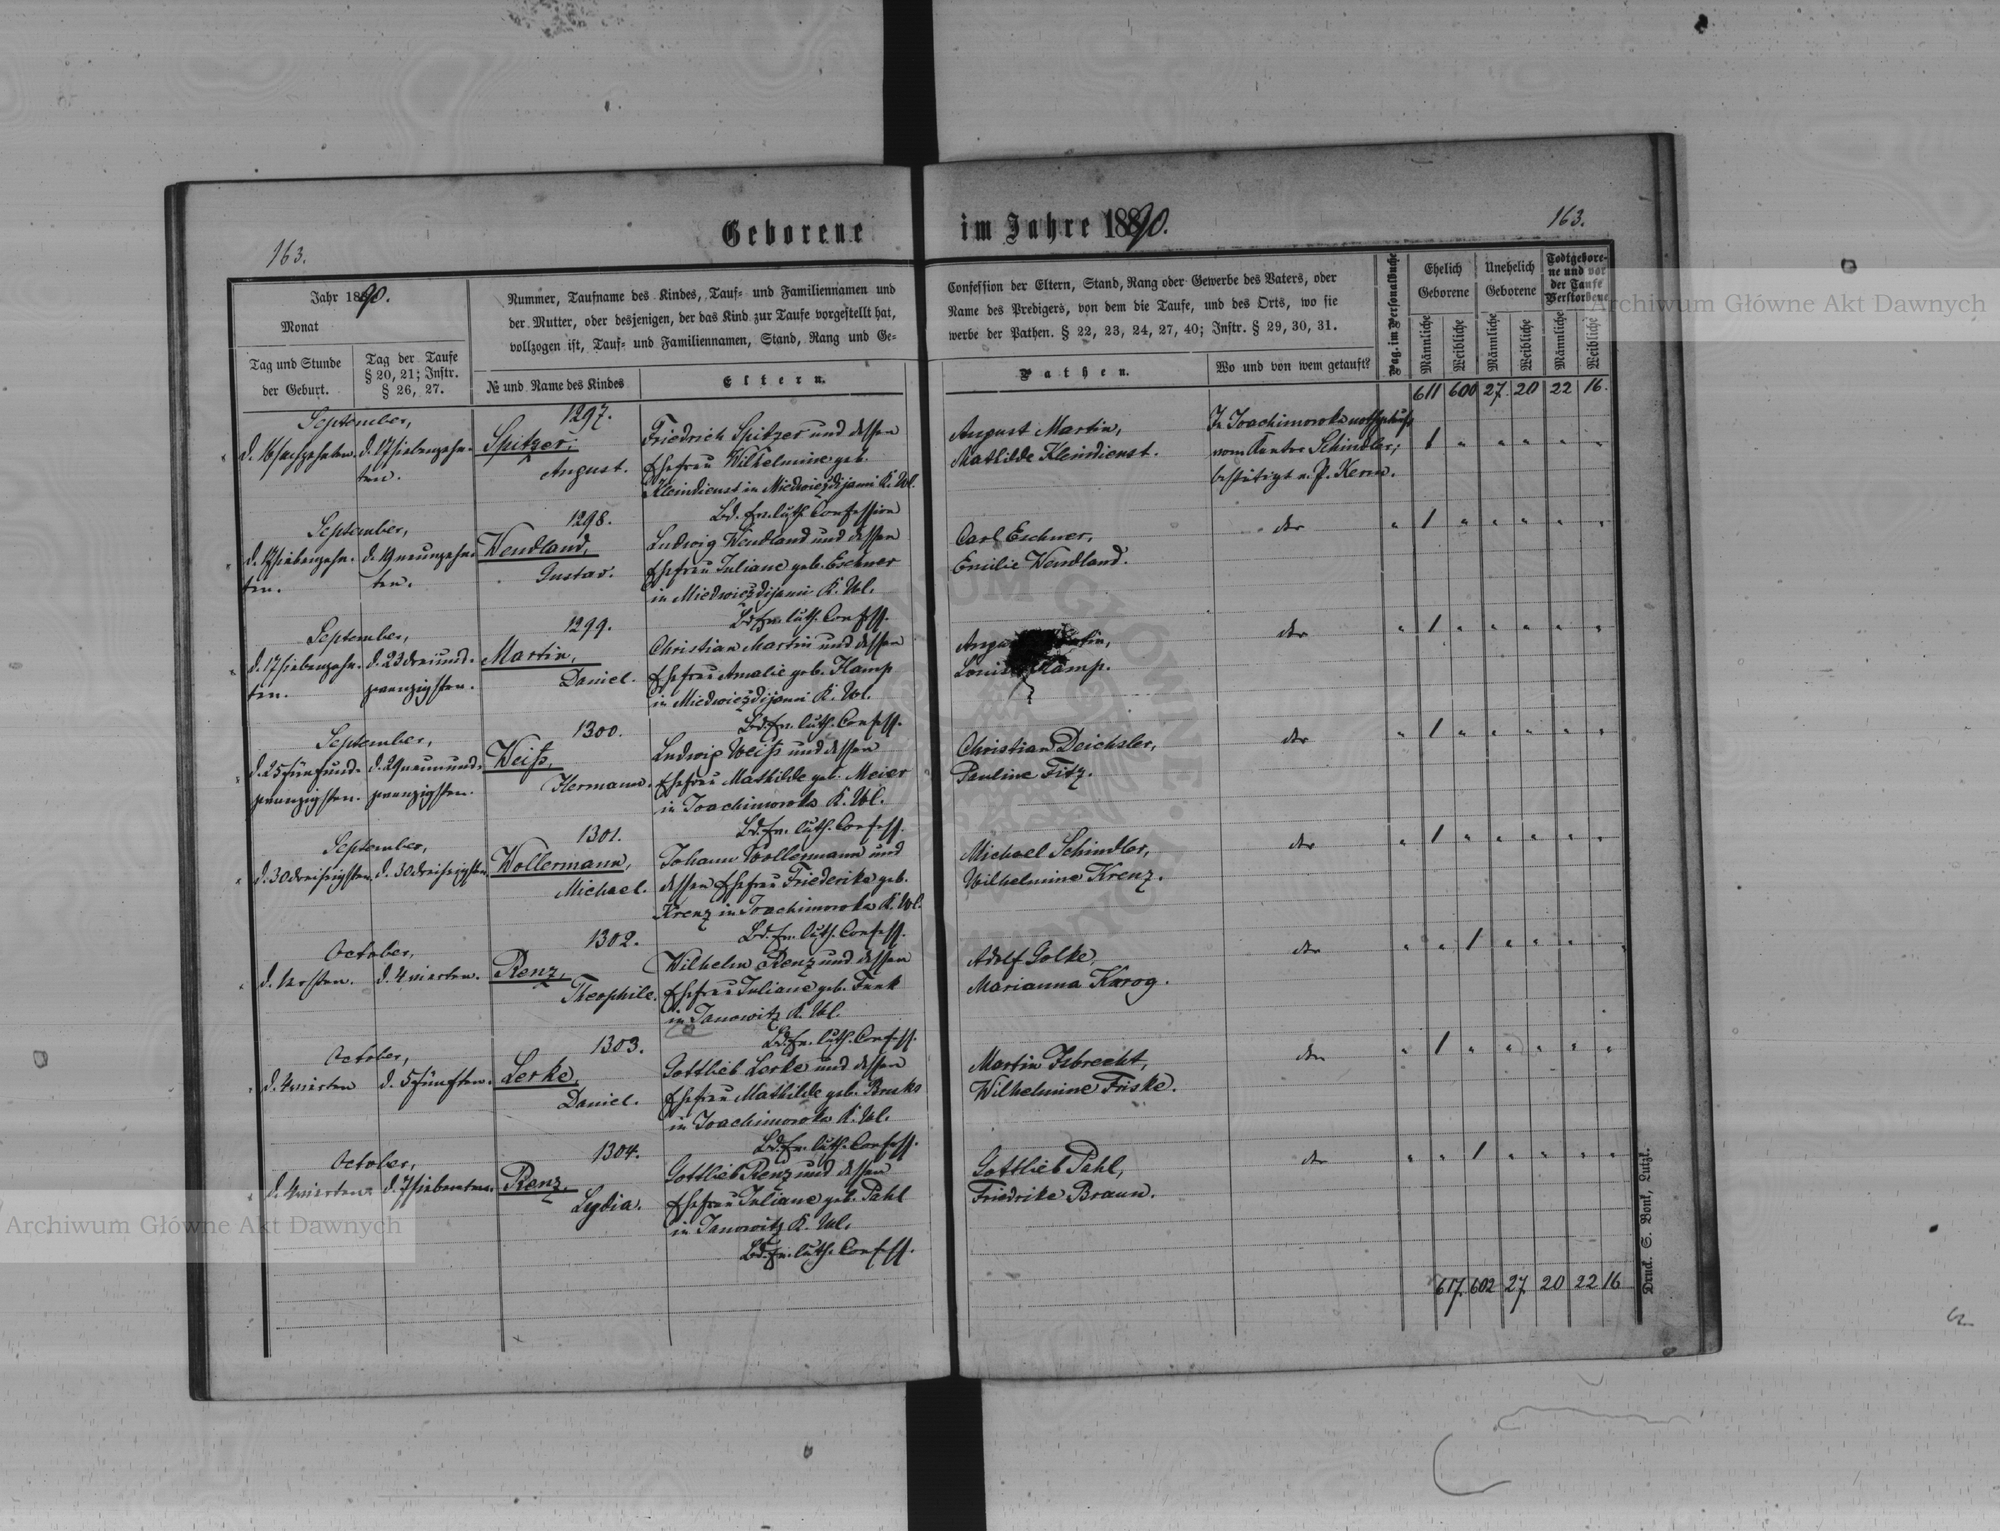 163.
Geborene
im Jahre 1890.
163.
Jahr 1890.
Monat
Tag und Stunde
der Geburt.
Tag der Taufe
§ 20, 21; Instr.
§ 26, 27.
Nummer, Taufname des Kindes, Tauf- und Familiennamen und
der Mutter, oder desjenigen, der das Kind zur Taufe vorgestellt hat,
vollzogen ist, Tauf- und Familiennamen, Stand, Rang und Ge-
№ und Name des Kindes
Eltern.
Confession der Eltern, Stand, Rang oder Gewerbe des Vaters, oder
Name des Predigers, von dem die Taufe, und des Orts, wo sie
werbe der Pathen. § 22, 23, 24, 27, 40; Instr. § 29, 30, 31.
Pathen.
Wo und von wem getauft?
Pag. im Personalbuche
Ehelich
Geborene
Unehelich
Geborene
Todtgebore-
ne und vor
der Taufe
Verstorbene
Männliche
Weibliche
Männliche
Weibliche
Männliche
Weibliche
611 600 27. 20 22 16.
September,
d. 16 sechzehnten. d. 17 siebenzehn-
ten.
1297.
Spitzer,
August.
Friedrich Spitzer und dessen
Ehefrau Wilhelmine geb.
Kleindienst in Miedwiezdijami K. Wl.
Bd. Ev. luth. Confession
August Martin,
Mathilde Kleindienst.
In Joachimowka nothgetauft
vom Kantor Schindler;
bestätigt v. P. Kern.
1
September,
d. 17 siebenzehn- d. 19 neunzehn-
ten. ten.
1298.
Wendland,
Gustav.
Ludwig Wendland und dessen
Ehefrau Juliane geb. Eschner
in Miedwiezdijami K. Wl.
Bd. Ev. luth. Confess.
Carl Eschner,
Emilie Wendland.
der
1
September,
d. 17 siebenzehn- d. 23 dreiund-
ten. zwanzigsten.
1299.
Martin,
Daniel.
Christian Martin und dessen
Ehefrau Amalie geb. Hamp
in Miedwiezdijami K. Wl.
Bd. Ev. luth. Confess.
der
1
September,
d. 25 fünfund- d. 29 neunund-
zwanzigsten. zwanzigsten.
1300.
Weiß,
Hermann.
Ludwig Weiß und dessen
Ehefrau Mathilde geb. Meier
in Joachimowka K. Wl.
Bd. Ev. luth. Confess.
Christian Deichsler,
Pauline Fitz.
der
1
September,
d. 30 dreißigsten. d. 30 dreißigsten.
1301.
Wollermann,
Michael.
Johann Wollermann und
dessen Ehefrau Friederike geb.
Krenz in Joachimowka K. Wl.
Bd. Ev. luth. Confess.
Michael Schindler,
Wilhelmine Krenz.
der
1
October,
d. 1 ersten. d. 4 vierten.
1302.
Renz,
Theophile.
Wilhelm Renz und dessen
Ehefrau Juliane geb. Funk
in Janowitz K. Wl.
Bd. Ev. luth. Confess.
Adolf Golke,
Marianna Karog.
der
1
October,
d. 4 vierten d. 5 fünften.
1303.
Lerke,
Daniel.
Gottlieb Lerke und dessen
Ehefrau Mathilde geb. Bruks
in Joachimowka K. Wl.
Bd. Ev. luth. Confess.
Martin Isbrecht,
Wilhelmine Friske.
der
1
October,
d. 4 vierten. d. 7 siebenten.
1304.
Renz,
Lydia.
Gottlieb Renz und dessen
Ehefrau Juliane geb. Pahl
in Janowitz K. Wl.
Bd. Ev. luth. Confess.
Gottlieb Pahl,
Friedrike Braun.
der
1
617. 602 27. 20 22 16
Druck. S. Bonk, Lutzk.
Archiwum Główne Akt Dawnych
Archiwum Główne Akt Dawnych